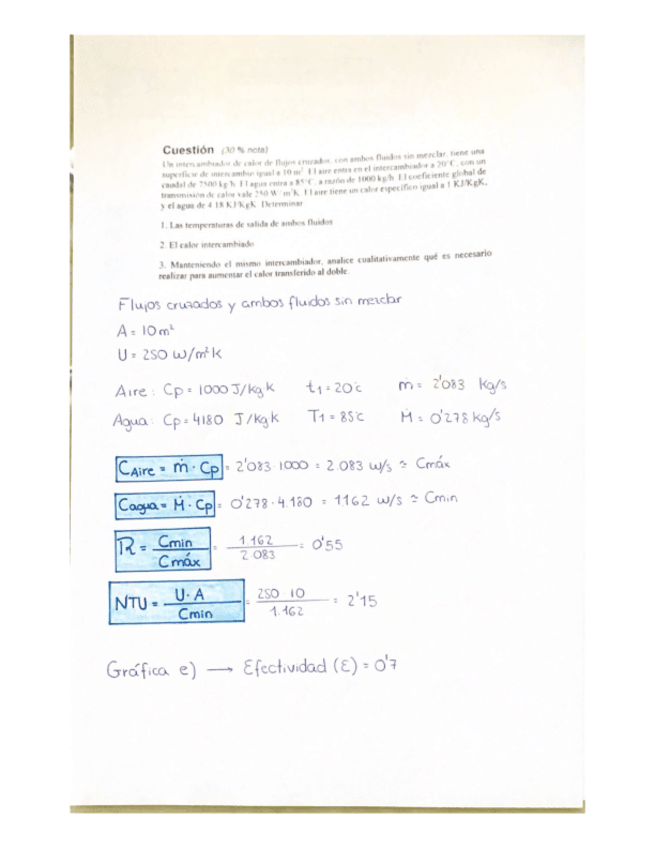 Cuestión (30 % nota)
Un intercambiador de calor de flujos cruzados, con ambos fluidos sin mezclar, tiene una
superficie de intercambio igual a 10 m². El aire entra en el intercambiador a 20°C, con un
caudal de 7500 kg/h. El agua entra a 85°C, a razón de 1000 kg/h. El coeficiente global de
transmisión de calor vale 250 W/m²K. El aire tiene un calor específico igual a 1 KJ/KgK,
y el agua de 4.18 KJ/KgK. Determinar
1. Las temperaturas de salida de ambos fluidos
2. El calor intercambiado
3. Manteniendo el mismo intercambiador, analice cualitativamente qué es necesario
realizar para aumentar el calor transferido al doble.
Flujos cruzados y ambos fluidos sin mezclar
A = 10 m²
U = 250 w/m²k
Aire : Cp = 1000 J/kg k t1 = 20°c ṁ = 2'083 kg/s
Agua : Cp = 4180 J/kg k T1 = 85°c Ṁ = 0'278 kg/s
CAire = ṁ · Cp = 2'083 · 1000 = 2.083 w/s ≃ Cmáx
Cagua = Ṁ · Cp = 0'278 · 4.180 = 1162 w/s ≃ Cmin
R = Cmin / Cmáx = 1.162 / 2.083 = 0'55
NTU = U · A / Cmin = 250 · 10 / 1.162 = 2'15
Gráfica e) → Efectividad (ε) = 0'7